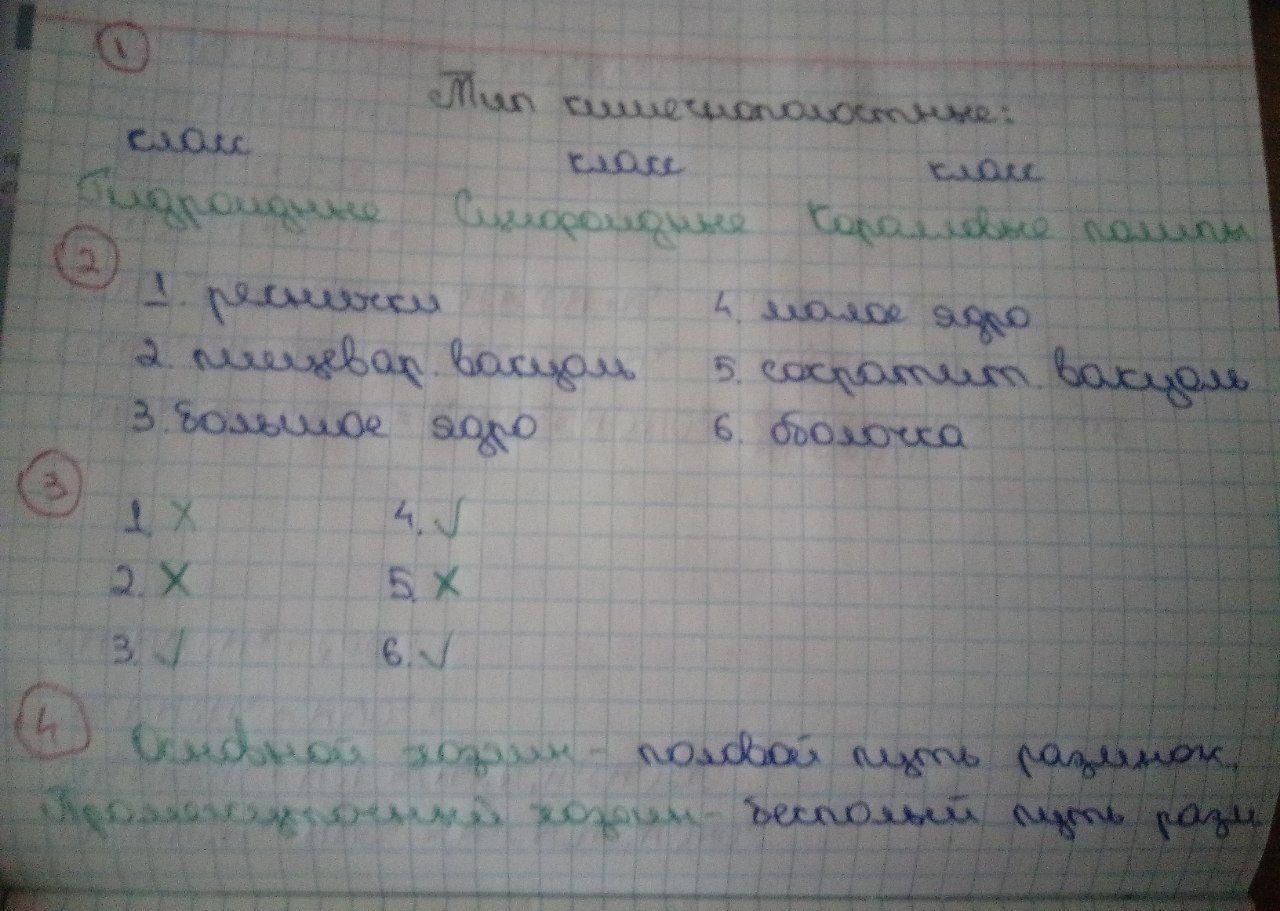 1
Тип кишечнополостные:
класс класс класс
Гидроидные Сцифоидные Коралловые полипы
2
1. реснички 4. малое ядро
2. пищевар. вакуоль 5. сократит. вакуоль
3. большое ядро 6. оболочка
3
1. X 4. √
2. X 5. X
3. √ 6. √
4
Основной хозяин – половой путь размнож.
Промежуточный хозяин – бесполый путь разм